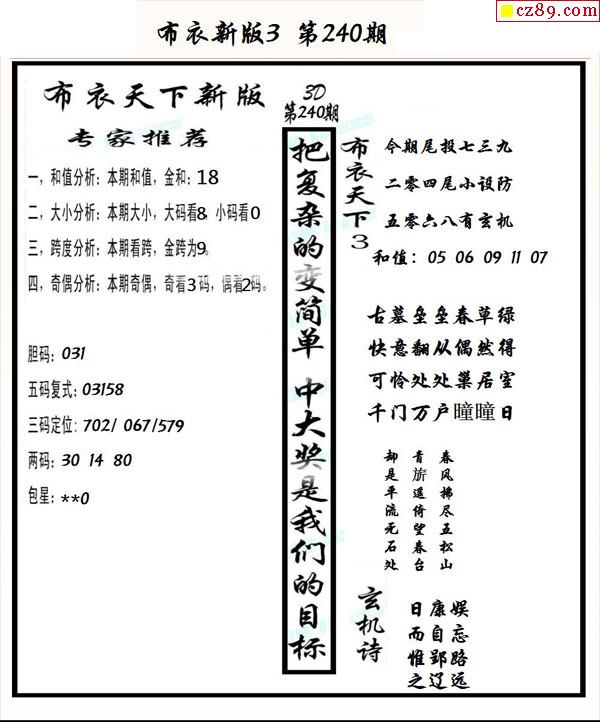 cz89.com
布衣新版3 第240期
布衣天下新版
专家推荐
一，和值分析：本期和值，金和：18
二，大小分析：本期大小，大码看8，小码看0
三，跨度分析：本期看跨，金跨为9。
四，奇偶分析：本期奇偶，奇看3码，偶看2码。
胆码：031
五码复式：03158
三码定位：702/ 067/579
两码：30 14 80
包星：**0
3D
第240期
把复杂的变简单 中大奖是我们的目标
布衣天下3
今期尾投七三九
二零四尾小设防
五零六八有玄机
和值：05 06 09 11 07
古墓垒垒春草绿
快意翻从偶然得
可怜处处巢居室
千门万户曈曈日
春风拂尽五松山
青旂遥倚望春台
却是平流无石处
玄机诗
日康娱
而自忘
惟郢路
之辽远